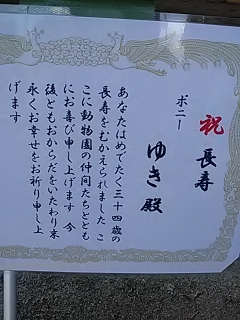 祝 長寿
ポニー
ゆき 殿
あなたはめでたく三十四歳の
長寿をむかえられました こ
こに動物園の仲間たちととも
にお喜び申し上げます 今
後ともおからだをいたわり末
永くお幸せをお祈り申し上
げます